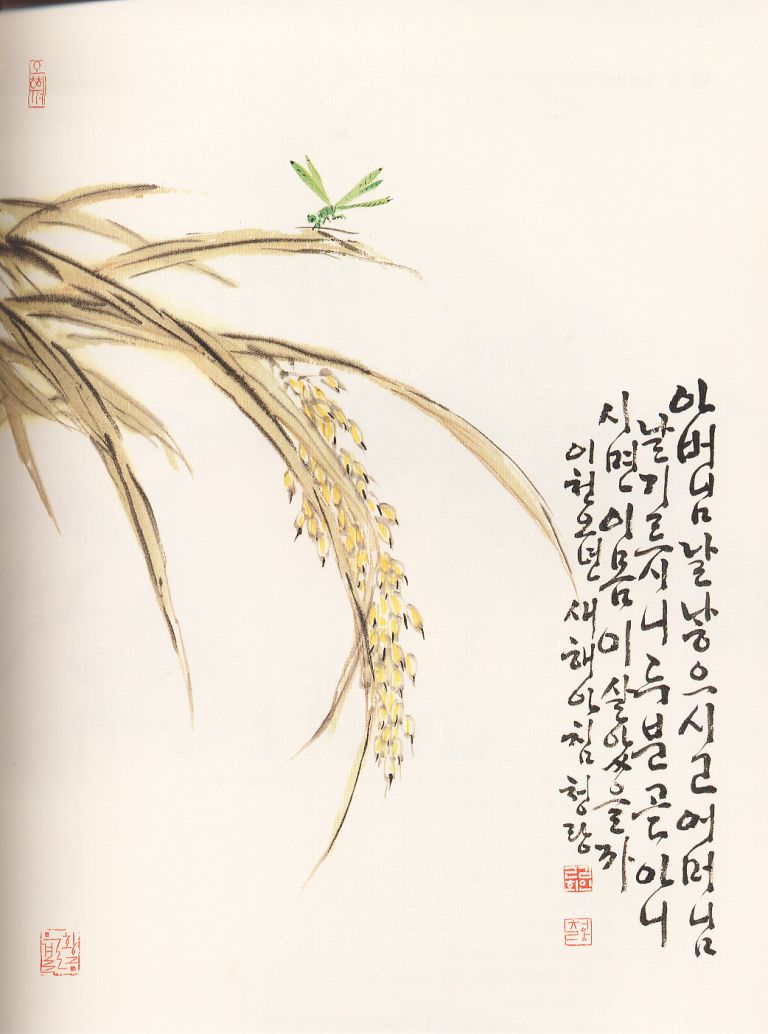 아버님 날 낳으시고 어머님
날 기르시니 두 분 곧 아니
시면 이 몸이 살았을까
이천오년 새해 아침 청랑